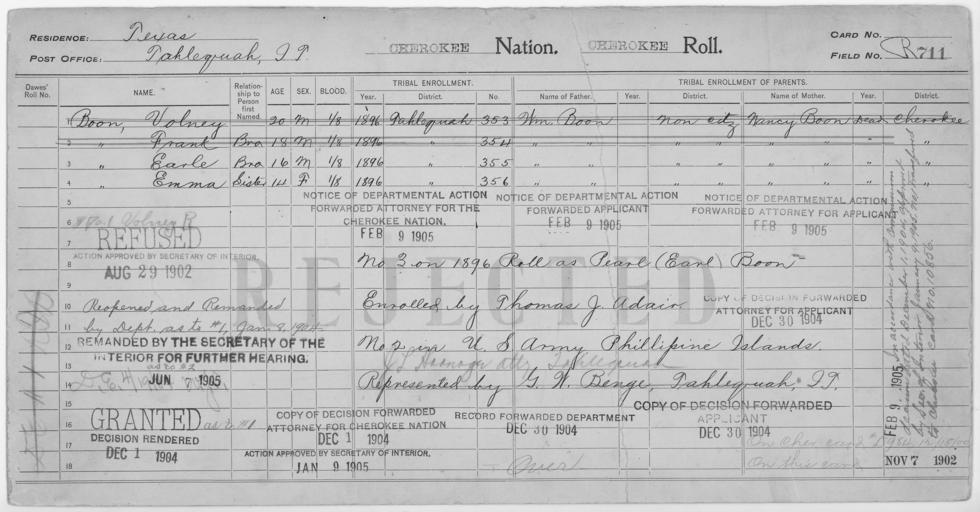 RESIDENCE: Texas
POST OFFICE: Tahlequah, I.T.
CHEROKEE Nation. CHEROKEE Roll.
CARD NO.
FIELD NO. R711
Dawes' Roll No. NAME. Relationship to Person first Named. AGE SEX. BLOOD. TRIBAL ENROLLMENT. Year. District. No. TRIBAL ENROLLMENT OF PARENTS. Name of Father. Year. District. Name of Mother. Year. District.
1 Boon, Volney 20 M 1/8 1896 Tahlequah 353 Wm. Boon non citz Nancy Boon dead Cherokee
2 " Frank Bro 18 M 1/8 1896 " 354 " " " " " "
3 " Earle Bro 16 M 1/8 1896 " 355 " " " " " "
4 " Emma Sister 14 F 1/8 1896 " 356 " " " " " "
5
NOTICE OF DEPARTMENTAL ACTION FORWARDED ATTORNEY FOR THE CHEROKEE NATION. FEB 9 1905
NOTICE OF DEPARTMENTAL ACTION FORWARDED APPLICANT FEB 9 1905
NOTICE OF DEPARTMENTAL ACTION FORWARDED ATTORNEY FOR APPLICANT FEB 9 1905
6 No. 1 Volney R
7 REFUSED
ACTION APPROVED BY SECRETARY OF INTERIOR.
8 AUG 29 1902
No 3 on 1896 Roll as Pearl (Earl) Boon
9
REJECTED
10 Reopened and Remanded
Enrolled by Thomas J. Adair
COPY OF DECISION FORWARDED ATTORNEY FOR APPLICANT DEC 30 1904
11 by Dept. as to #1, Jan. 8, 1904
12 REMANDED BY THE SECRETARY OF THE INTERIOR FOR FURTHER HEARING.
No 2 in U S Army Phillipine Islands.
13 as to #2
Tahlequah
14 JUN 7 1905
Represented by G. W. Benge, Tahlequah, I.T.
15
16 GRANTED as to #1
17 DECISION RENDERED
DEC 1 1904
COPY OF DECISION FORWARDED ATTORNEY FOR CHEROKEE NATION DEC 1 1904
RECORD FORWARDED DEPARTMENT DEC 30 1904
COPY OF DECISION FORWARDED APPLICANT DEC 30 1904
18
ACTION APPROVED BY SECRETARY OF INTERIOR.
JAN 9 1905
Over
On this card
NOV 7 1902
FEB 9 1905